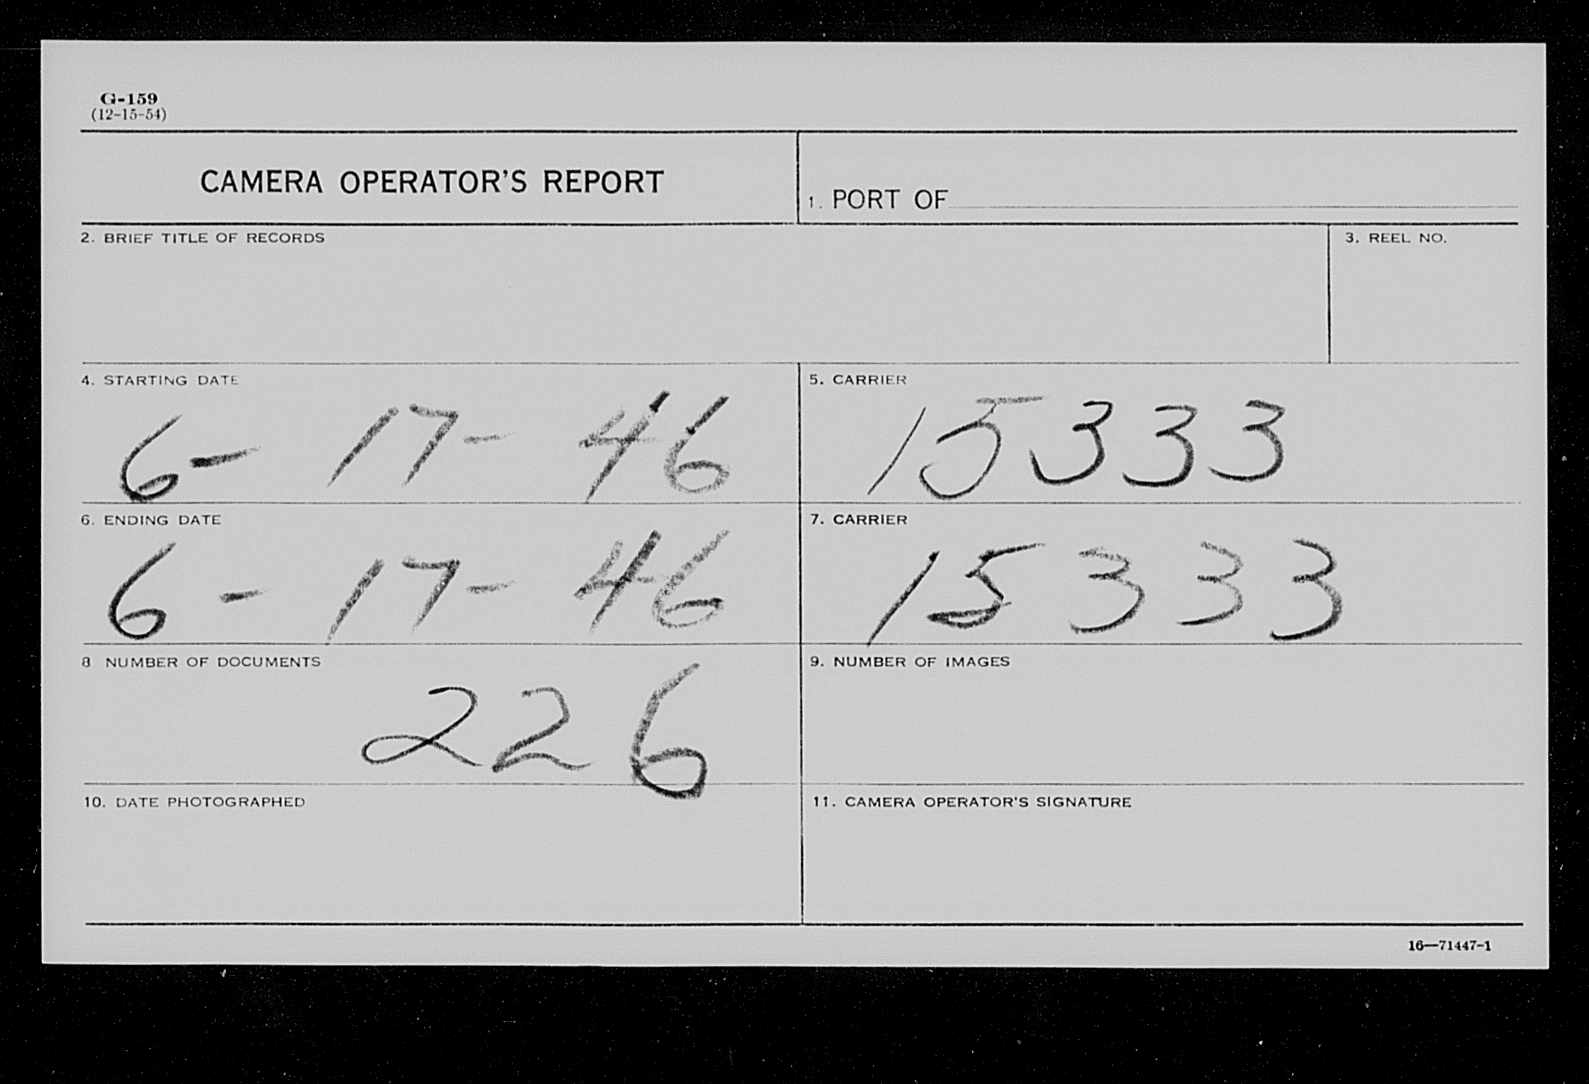 G-159
(12-15-54)
CAMERA OPERATOR'S REPORT
1. PORT OF
2. BRIEF TITLE OF RECORDS
3. REEL NO.
4. STARTING DATE
6- 17- 46
5. CARRIER
15333
6. ENDING DATE
6- 17- 46
7. CARRIER
15333
8 NUMBER OF DOCUMENTS
226
9. NUMBER OF IMAGES
10. DATE PHOTOGRAPHED
11. CAMERA OPERATOR'S SIGNATURE
16—71447-1